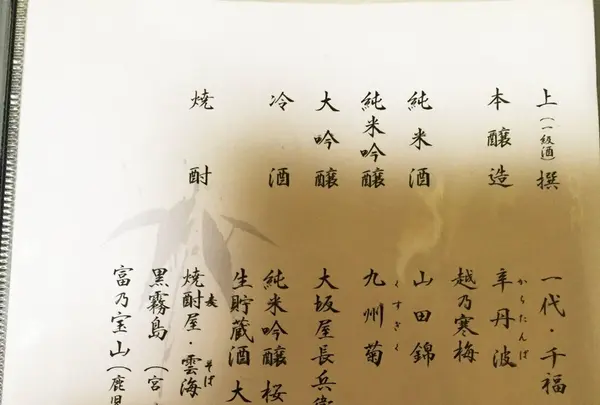 上撰(一級酒) 一代・千福
本醸造 辛丹波 からたんば
越乃寒梅
純米酒 山田錦
純米吟醸 九州菊 くすぎく
大吟醸 大坂屋長兵衛
冷酒 純米吟醸 桜
生貯蔵酒 大
焼酎 焼酎屋・雲海 麦 そば
黒霧島(宮
富乃宝山(鹿児